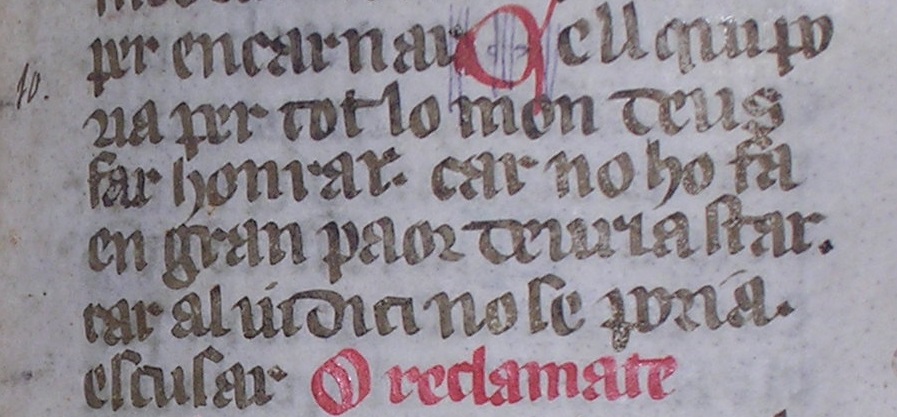 per encarnar Qell qui po
ria per tot lo mon deus
10.
far honrar. car no ho fa
en gran paor deuria star.
car al iudici no se poria.
escusar O reclamate